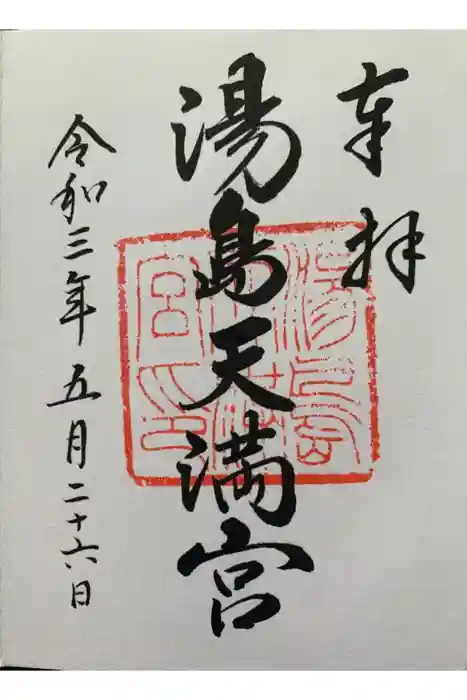 奉拝
湯島天満宮
令和三年五月二十六日
湯島
天満
宮印